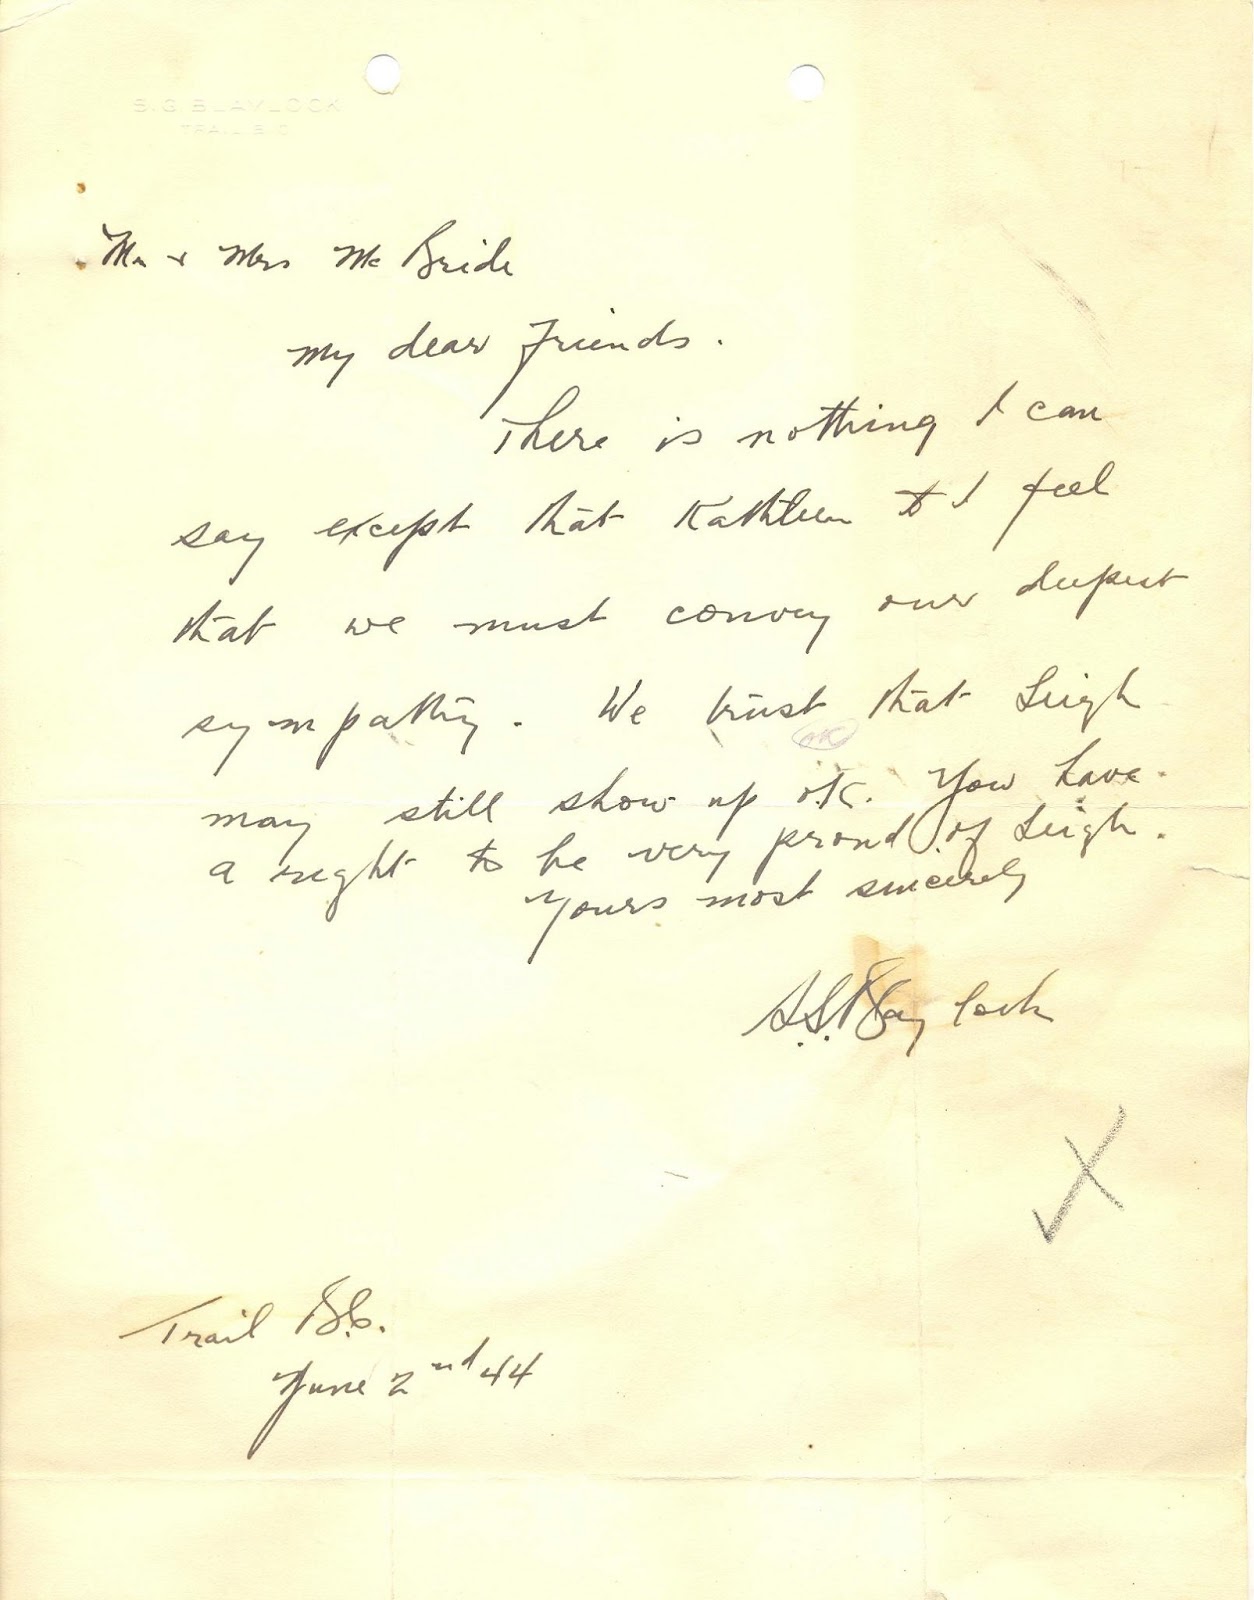 S. G. BLAYLOCK
TRAIL B.C.
Mr & Mrs McBride
My dear Friends.
There is nothing I can
say except that Kathleen & I feel
that we must convey our deepest
sympathy. We trust that Leigh
may still show up O.K. You have
OK
a right to be very proud of Leigh.
Yours most sincerely
S.G. Blaylock
Trail B.C.
June 2nd 44